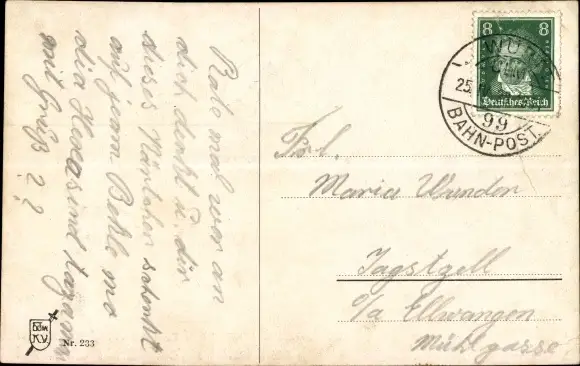 Rate mal wer an
dich denkt u. dir
dieses Kärtchen schenkt
auf jenem Berhle wo
die Hexe sind
mit Gruß ? ?
8 8
Deutsches Reich
WÜR
25.
99
BAHN-POST
Frl.
Maria Wunder
Jagstzell
o/a Ellwangen
Mühlgasse
Nr. 233